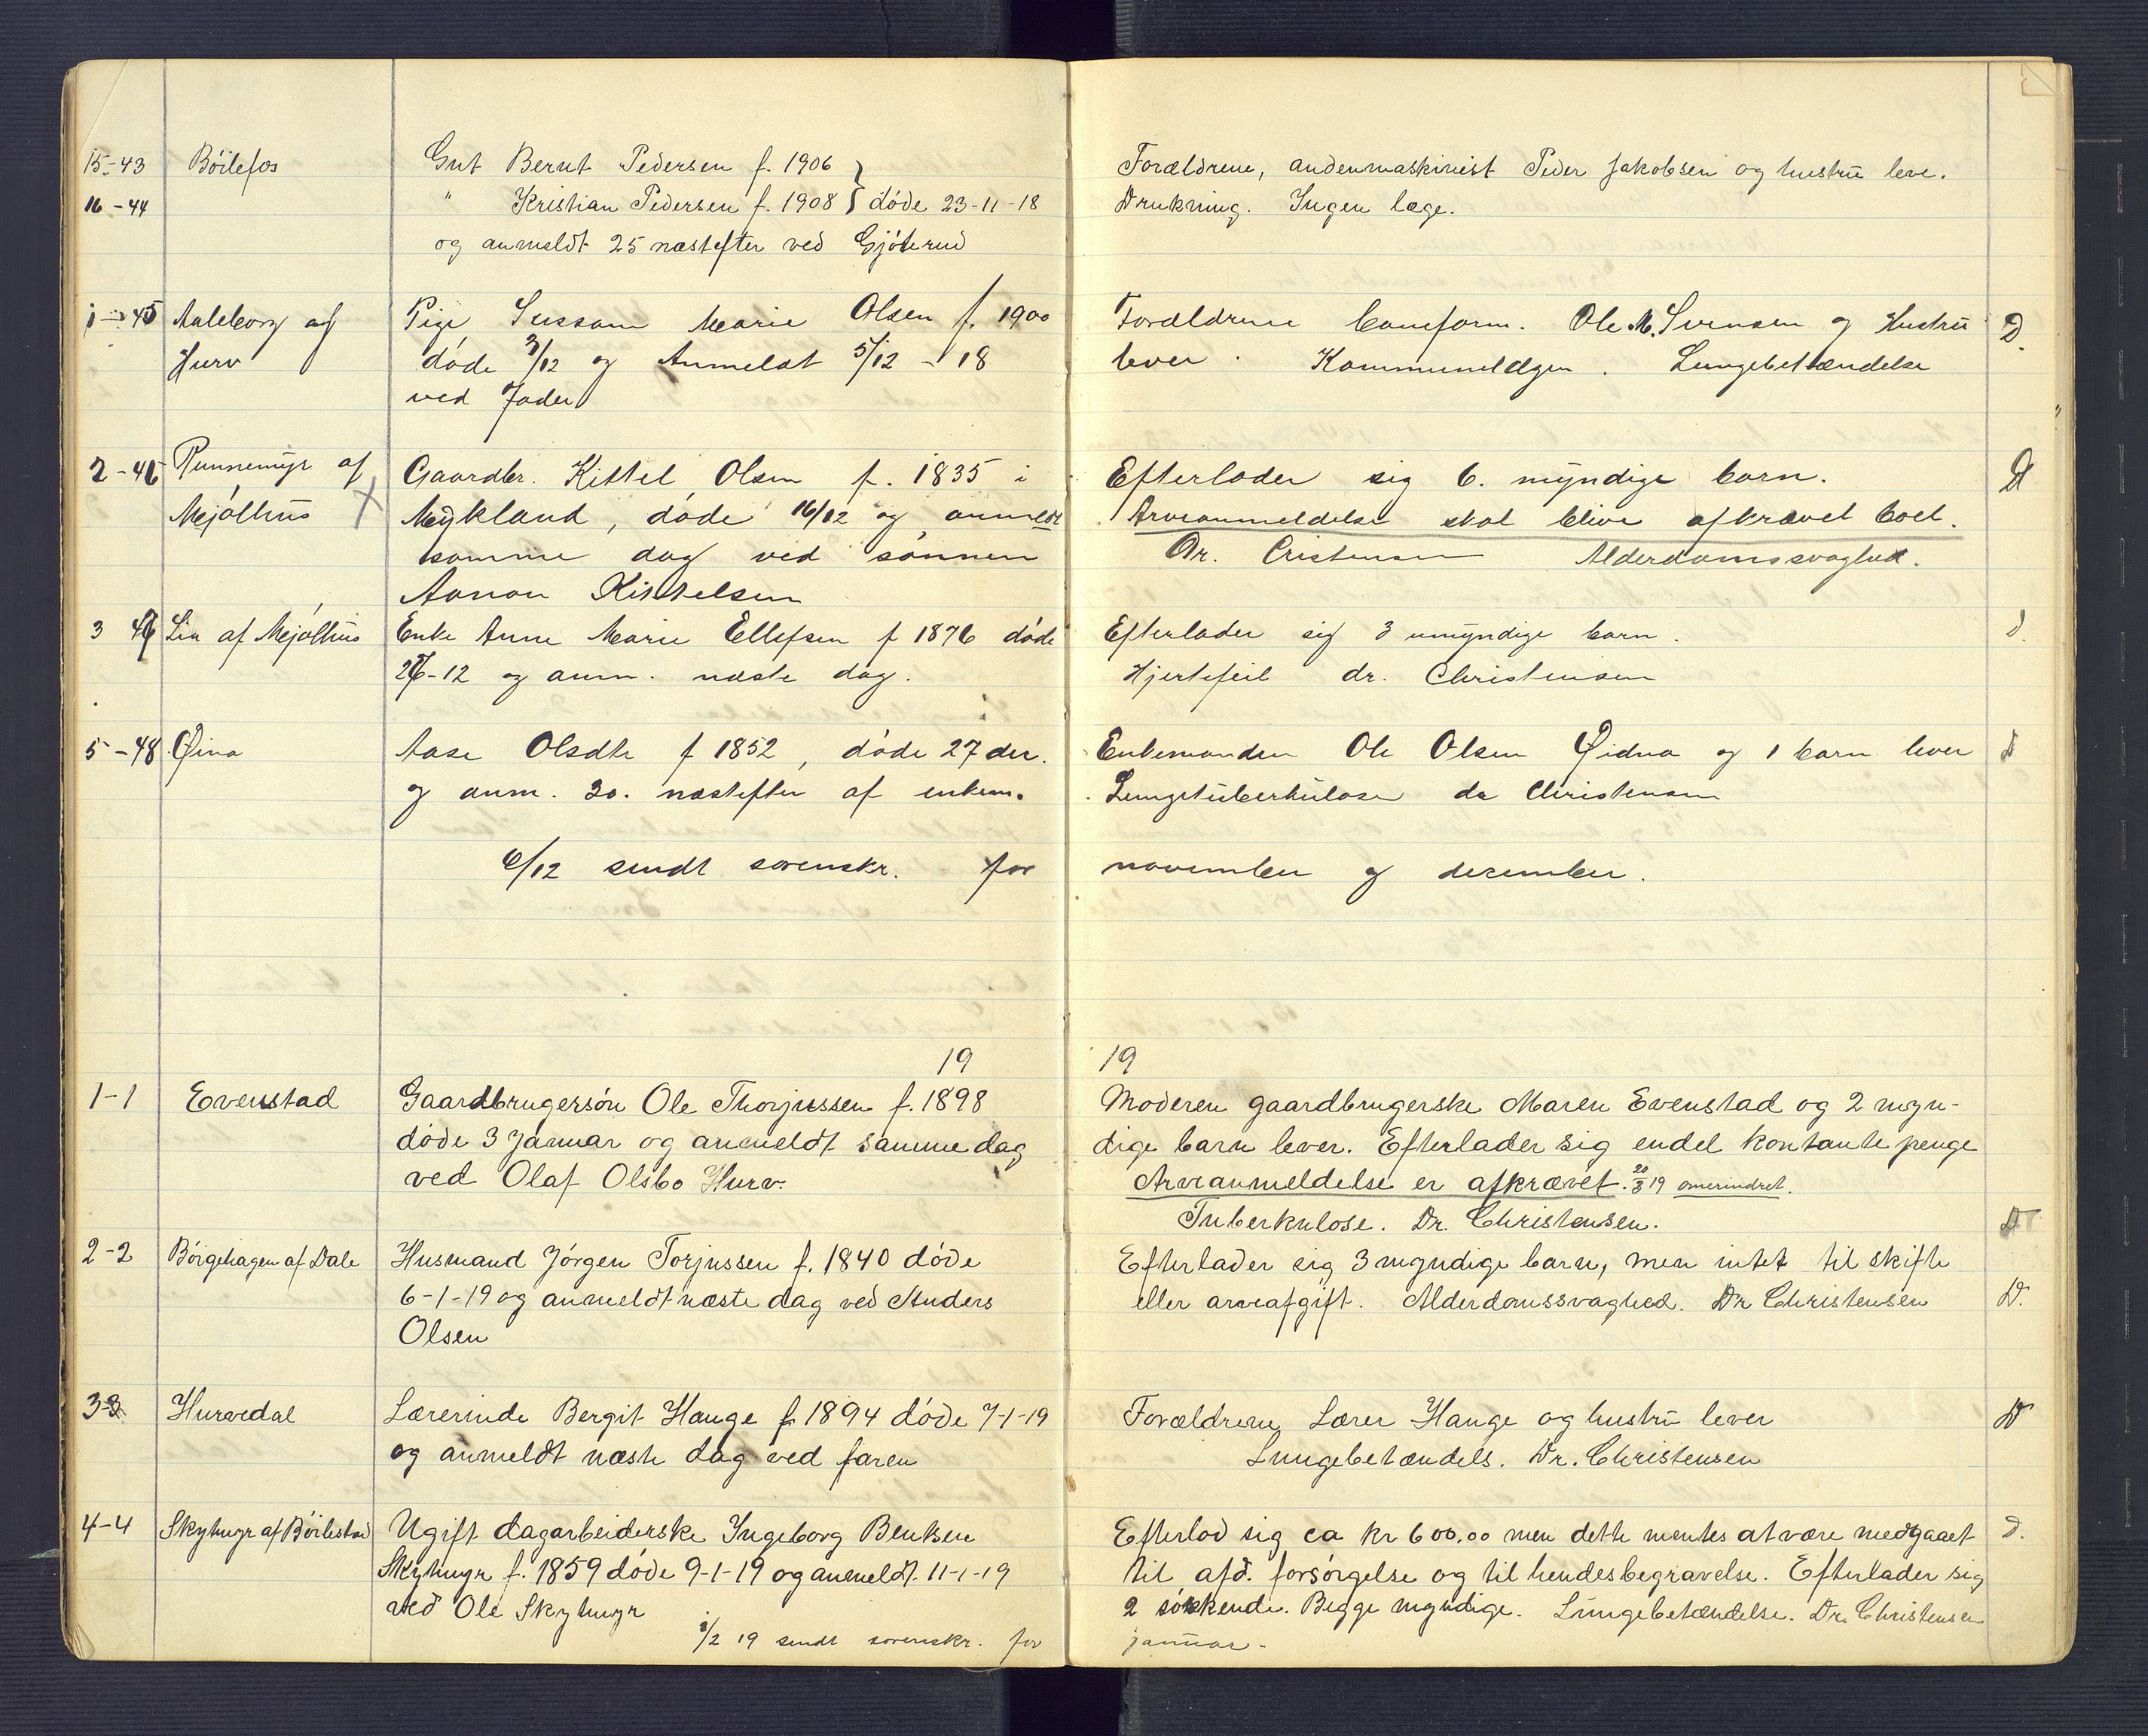 15-43 Böilefos Gut Bernt Pedersen f. 1906 Forældrene, andenmaskinist Peder Jakobsen og hustru leve.
16-44 " Kristian Pedersen f. 1908 } døde 23-11-18 Drukning. Ingen læge.
og anmeldt 25 næstefter ved Gjøterud
1-45 Aaleborg af Pige Sussane Marie Olsen f. 1900 Forældrene baneform. Ole M. Svensen og Hustru D.
Hurv døde 3/12 og Anmeldt 5/12 - 18 lever. Kommunelægen. Lungebetændelse
ved Fader
2-46 Runnemyr af Gaardbr. Kittel Olsen f. 1835 i Efterlader sig 6. myndige barn. D
Mjølhus X Mykland, døde 16/12 og anmeldt Arveanmeldelse skal blive afkrævet boet.
samme dag ved sønnen Dr. Cristensen Alderdomssvaghed.
Aanon Kittelsen
3 47 Lia af Mjølhus Enke Anne Marie Ellefsen f 1876 døde Efterlader sig 3 umyndige barn. D.
26-12 og anm. næste dag. Hjertefeil dr. Christensen
5-48 Øina Aase Olsdtr f 1852, døde 27 der. Enkemanden Ole Olsen Øidna og 1 barn lever D
og anm. 30. næstefter af enkem. Lungetuberkulose dr Christensen
6/12 sendt sorenskr. for november og desember.
19 19
1-1 Evenstad Gaardbrugersøn Ole Thorjussen f. 1898 Moderen gaardbrugerske Maren Evenstad og 2 myn-
døde 3 Januar og anmeldt samme dag dige barn lever. Efterlader sig endel kontante penge
ved Olaf Olsbo Hurv. Arveanmeldelse er afkrævet. 20/3 19 omerindret.
Tuberkulose. Dr. Christensen. D
2-2 Böigehagen af Dale Husmand Jörgen Torjussen f. 1840 døde Efterlader sig 3 myndige barn, men intet til skifte
6-1-19 og anmeldt næste dag ved Anders eller arveafgift. Alderdomssvaghed. Dr Christensen D.
Olsen
3-3 Hurvedal Lærerinde Bergit Hauge f 1894 døde 7-1-19 Forældrene Lærer Hauge og hustru lever D
og anmeldt næste dag ved faren Lungebetændels. Dr. Christensen
4-4 Skytmyr af Böilestad Ugift dagarbeiderske Ingeborg Bentsen Efterlod sig ca kr 600.00 men dette mentes at være medgaaet D.
Skytmyr f. 1859 døde 9-1-19 og anmeldt 11-1-19 til afd. forsørgelse og til hendes begravelse. Efterlader sig
ved Ole Skytmyr 2 søskende. Begge myndige. Lungebetændelse. Dr. Christensen
1/2 19 sendt sorenskr. for januar-